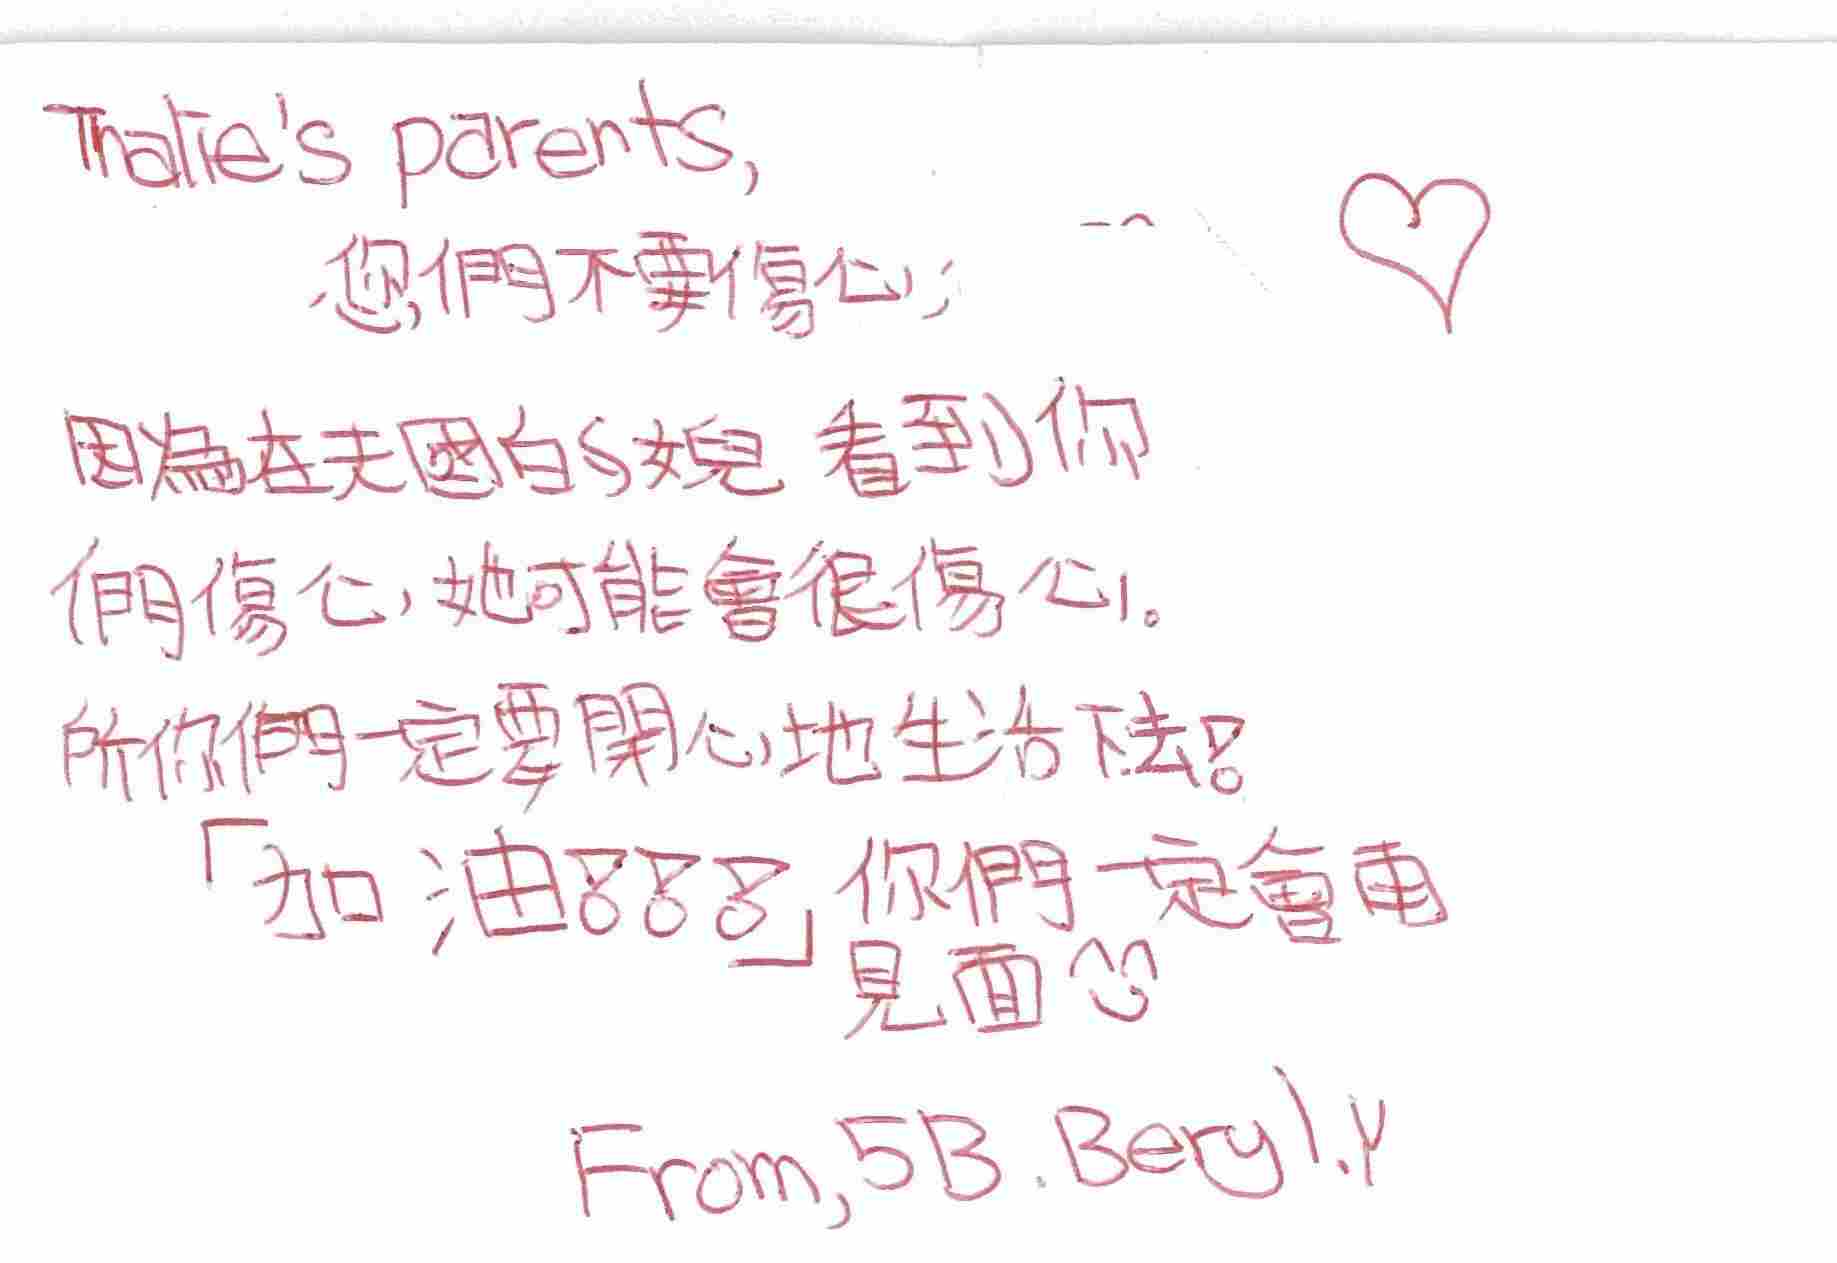 Thalie's parents,
您們不要傷心,
因為在天國的女兒看到你
們傷心,她可能會很傷心。
所你們一定要開心地生活下去!
「加油!!!」你們一定會再
見面
From, 5B. Beryl.y